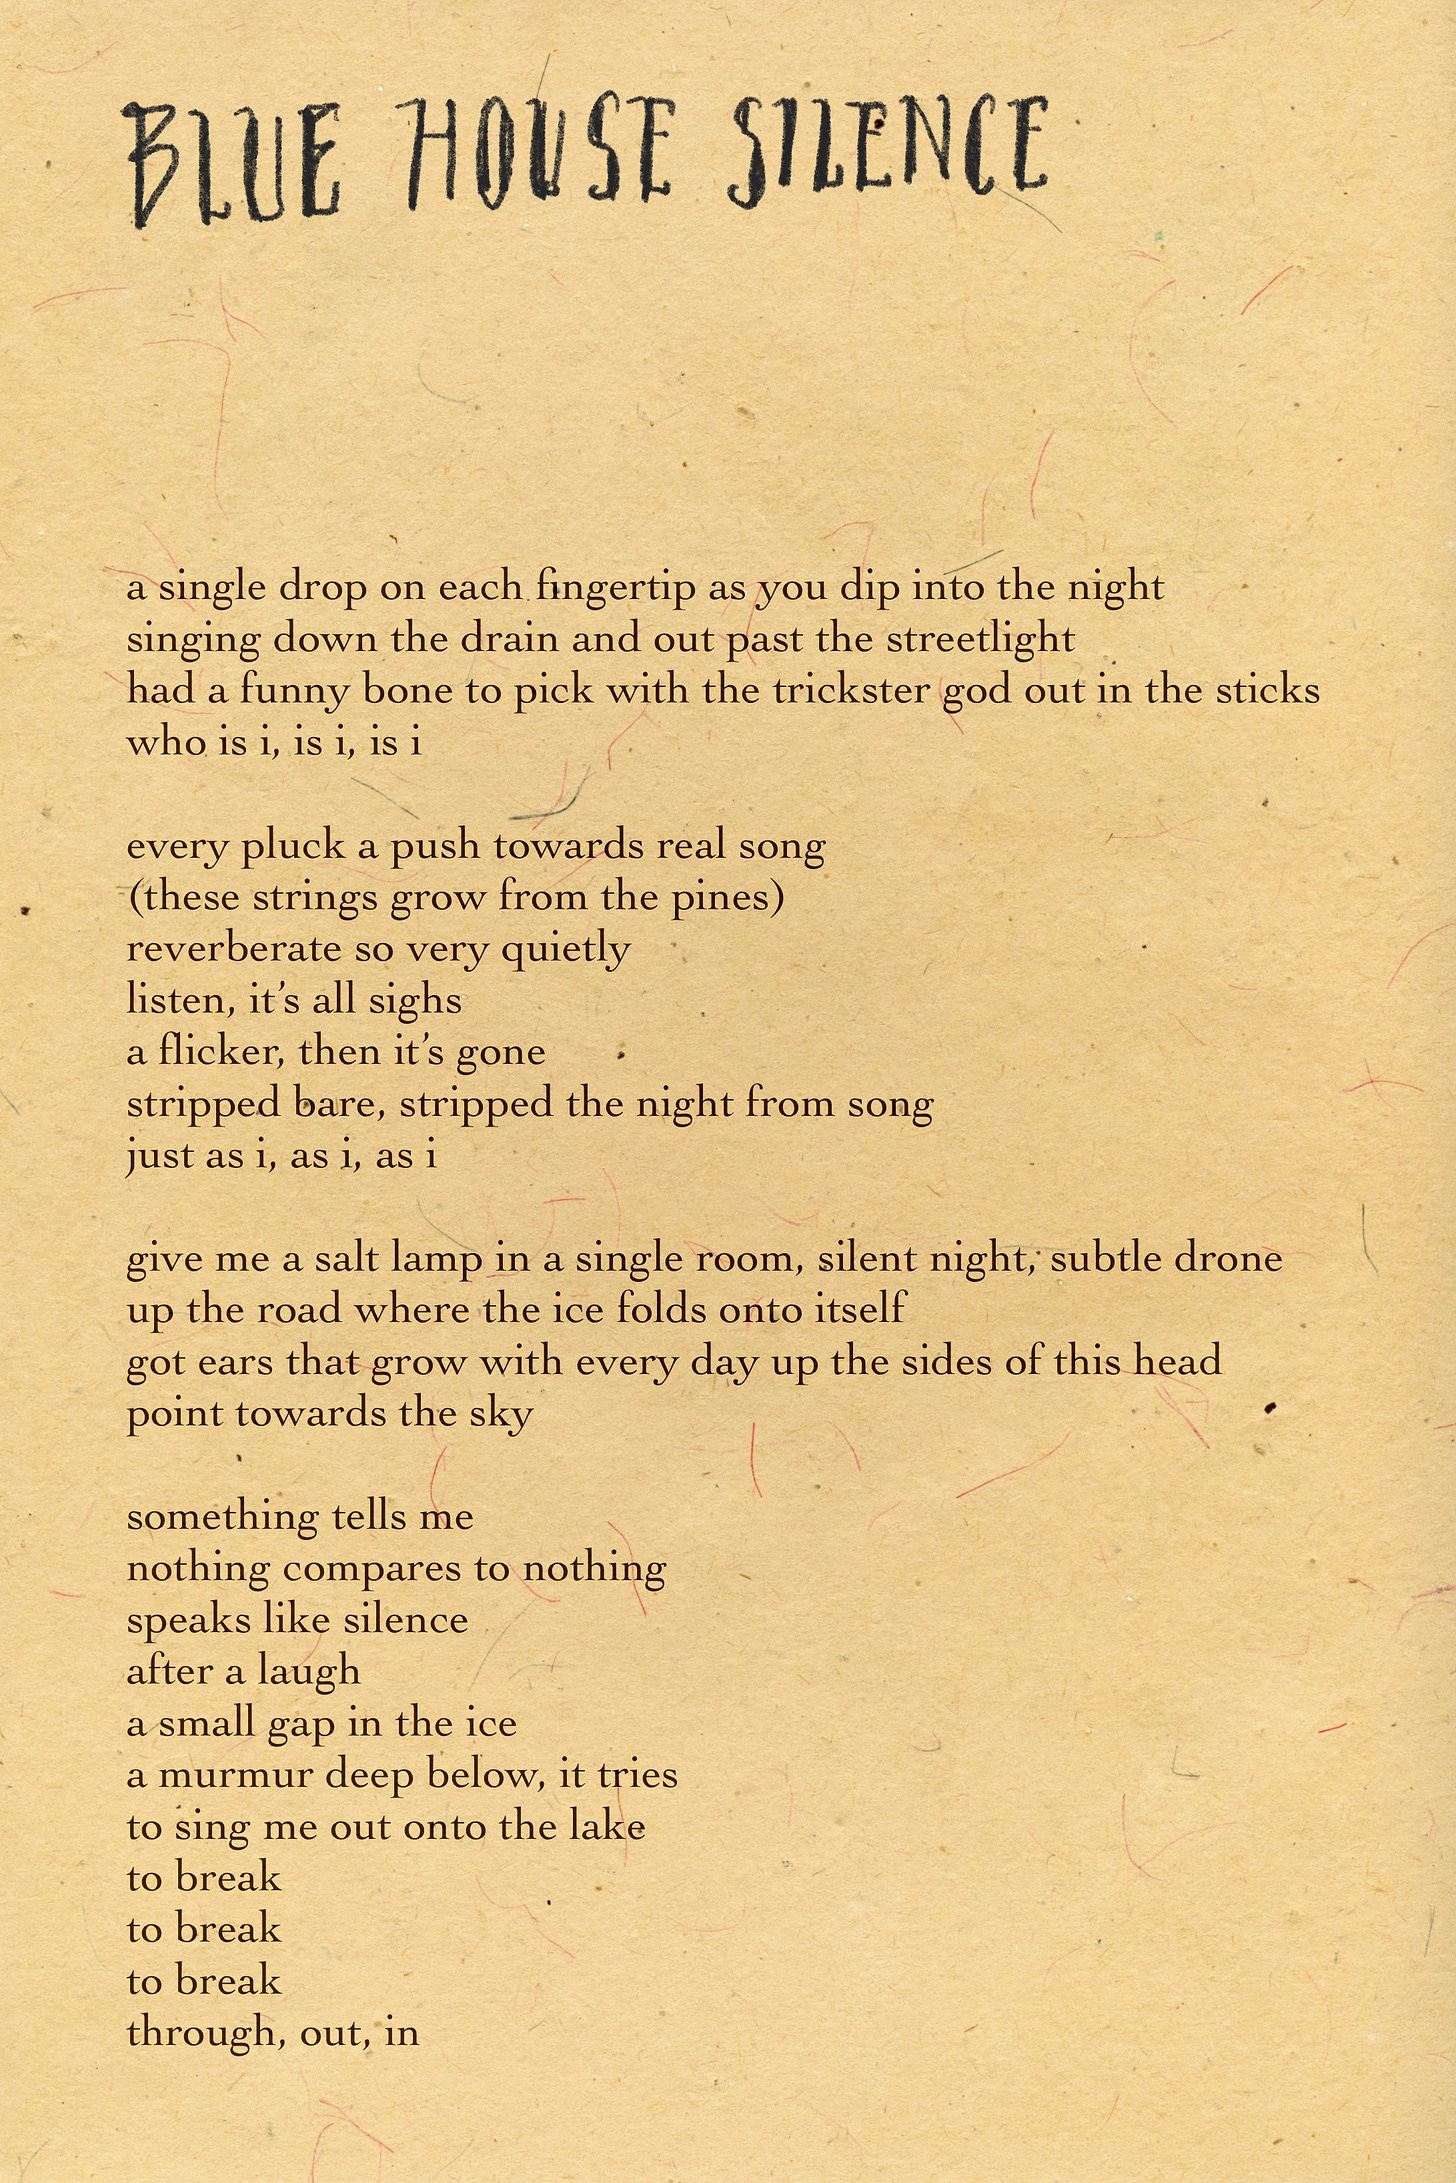 BLUE HOUSE SILENCE
a single drop on each fingertip as you dip into the night
singing down the drain and out past the streetlight
had a funny bone to pick with the trickster god out in the sticks
who is i, is i, is i
every pluck a push towards real song
(these strings grow from the pines)
reverberate so very quietly
listen, it’s all sighs
a flicker, then it’s gone
stripped bare, stripped the night from song
just as i, as i, as i
give me a salt lamp in a single room, silent night, subtle drone
up the road where the ice folds onto itself
got ears that grow with every day up the sides of this head
point towards the sky
something tells me
nothing compares to nothing
speaks like silence
after a laugh
a small gap in the ice
a murmur deep below, it tries
to sing me out onto the lake
to break
to break
to break
through, out, in